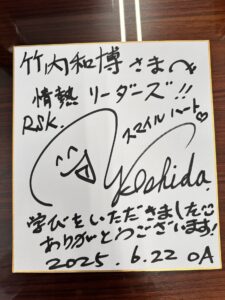 竹内和博さまへ
情熱リーダーズ!!
RSK.
スマイルハート♡
Yoshida.
学びをいただきました
ありがとうございます!
2025. 6.22 OA